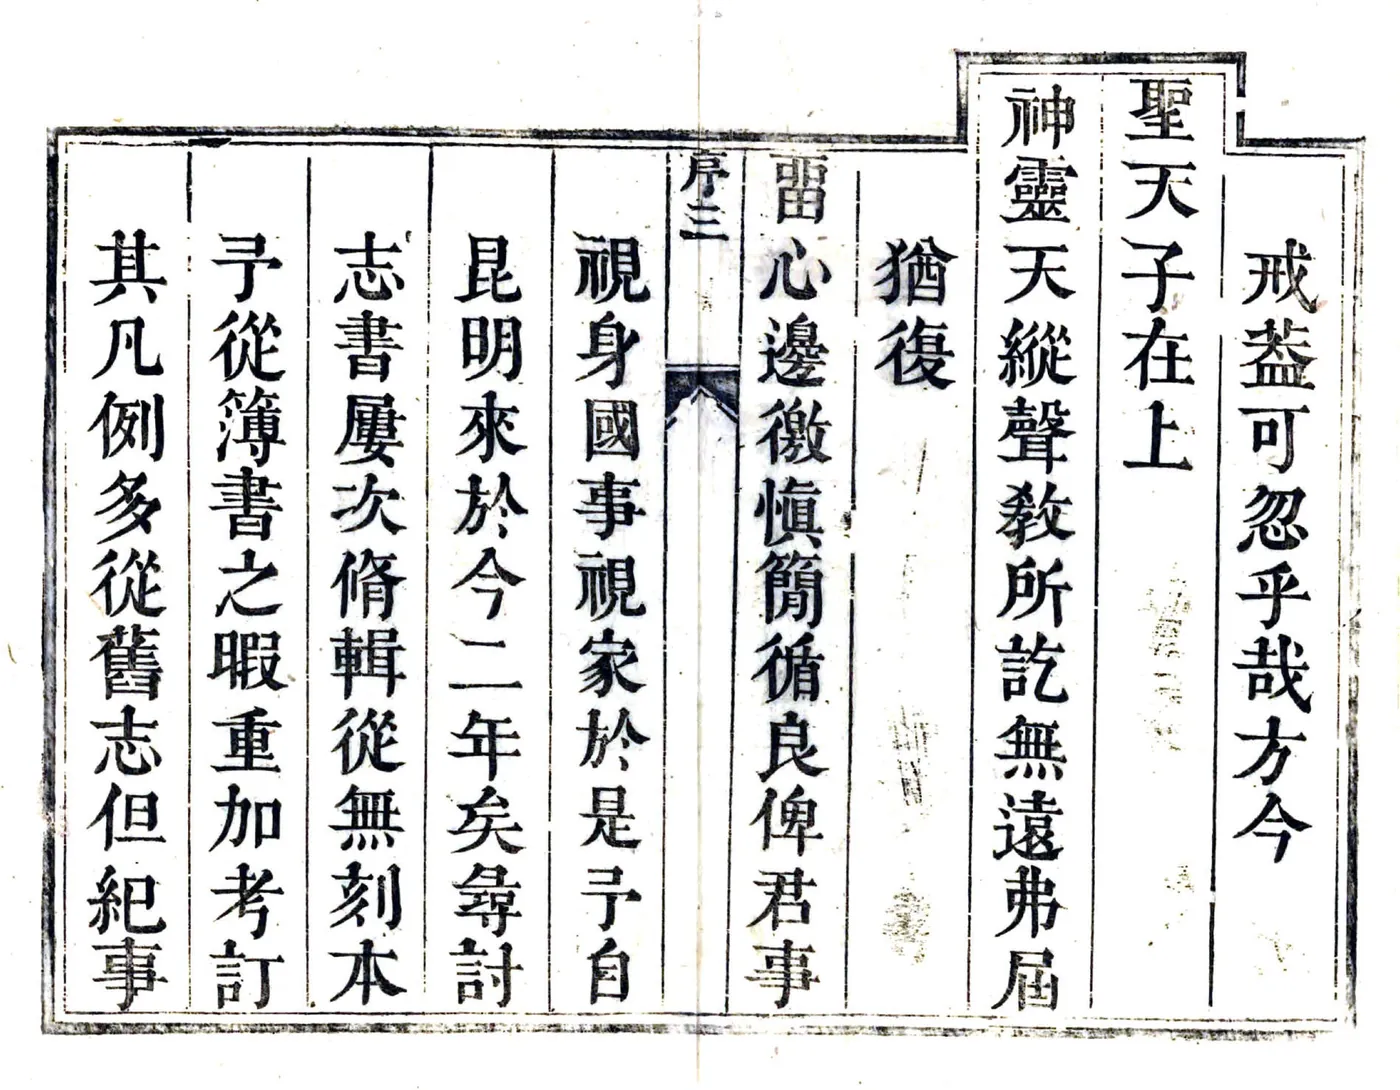 戒葢可忽乎哉方今
聖天子在上
神靈天縱聲教所訖無遠弗屆
猶復
畱心邊徼慎簡循良俾君事
序三
視身國事視家於是予自
昆明來於今二年矣尋討
志書屢次脩輯從無刻本
予從簿書之暇重加考訂
其凡例多從舊志但紀事